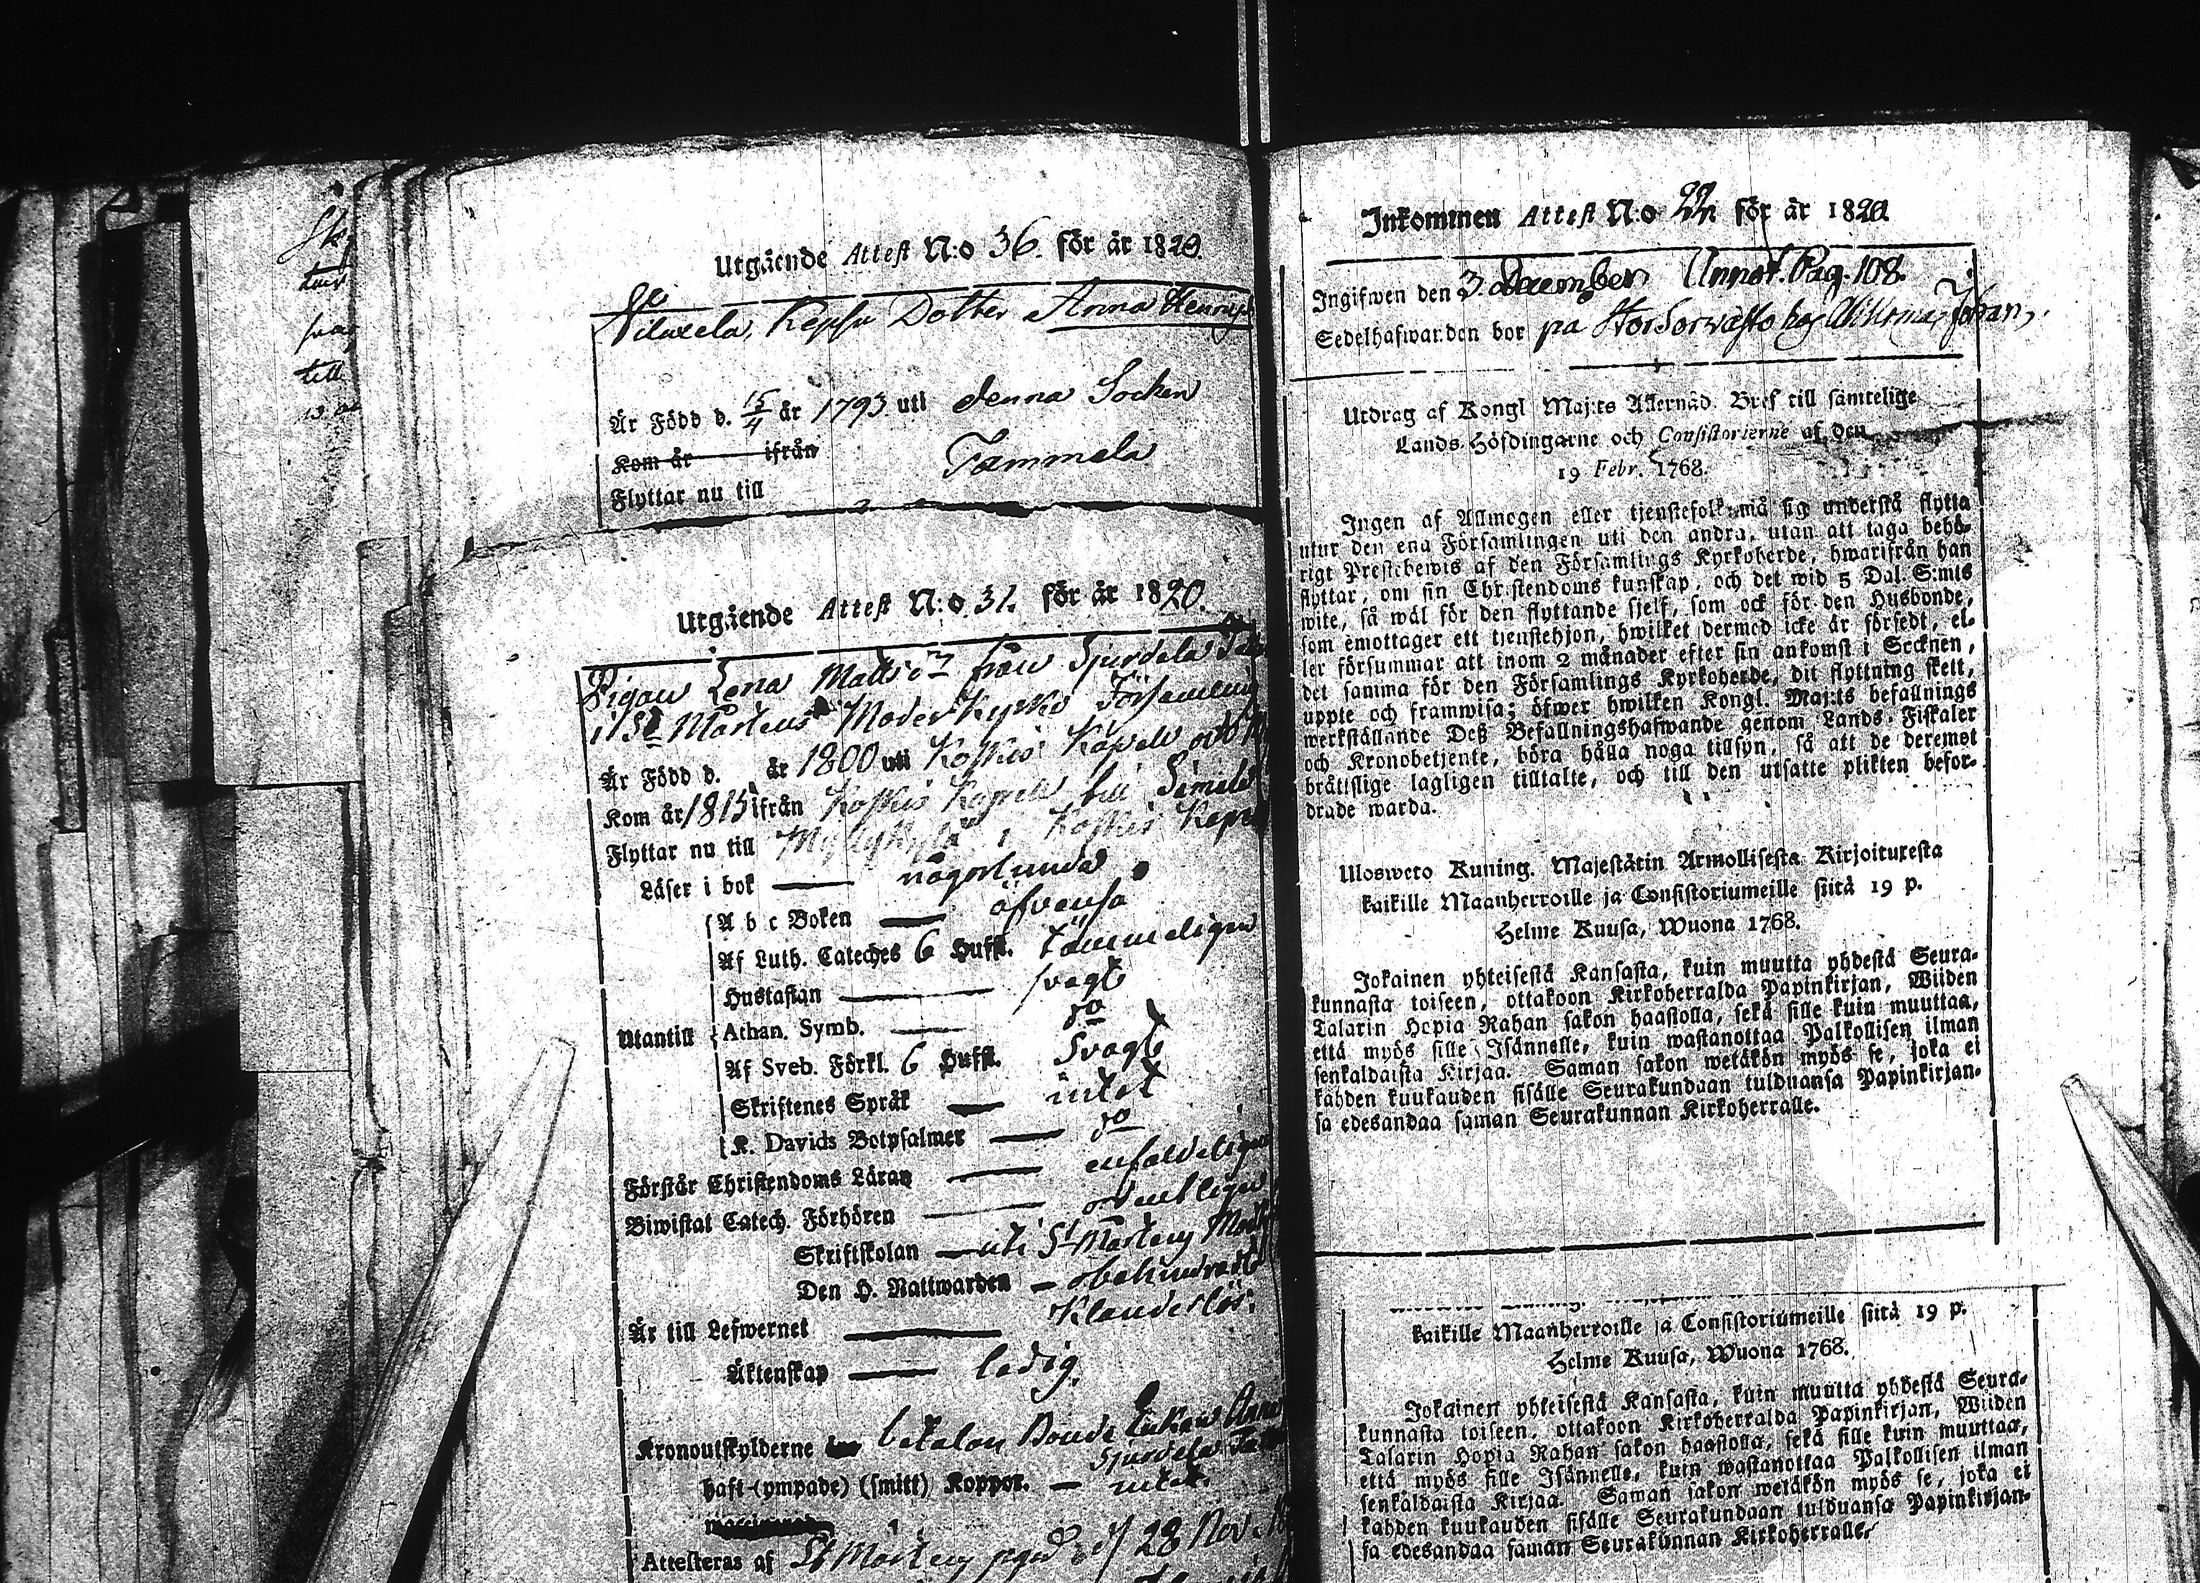 Utgående Attest N:o 36. för år 1820.
Kepsu Dotter Anna Henrics
Är Född d. 15/4 år 1793 uti denna Socken
Kom år ifrån
Flyttar nu till Tammela
Utgående Attest N:o 31. för år 1820.
Pigan Lena Matts dr från Sjurdela
i St Mårtens Moderkyrko Församling
Är Född d. år 1800 uti Koskis Kapell och
Kom år 1815 ifrån Koskis Kapell till
Flyttar nu till Myllykylä i Koskis Kapell
Läser i bok någorlunda
A b c Boken äfvenså
Af Luth. Cateches 6 Hufst. tämmeligen
Hustaflan svagt
Utantill Athan. Symb. do
Af Sveb. Förkl. 6 Hufst. Svagt
Skriftenes Språk intet
K. Davids Botpsalmer do
Förstår Christendoms Läran enfaldeligen
Biwistat Catech. Förhören ordentligen
Skriftskolan uti St Mårtens
Den H. Nattwarden obehindradt
Är till Lefwernet Klanderlös:
Äktenskap ledig.
Kronoutskylderne betalar Bonde
Sjurdela
haft (ympade) (smitt) Koppor. intet.
Attesteras af St Mårtens pgd d. 28 Nov.
Inkommen Attest N:o 22 för år 1820
Ingifwen den 3. December Annot. Pag. 108.
Sedelhafwanden bor på Johan,
Utdrag af Kongl Maj:ts Allernåd. Bref till samtelige
Lands-Höfdingarne och Consistorierne af den
19 Febr. 1768.
Ingen af Allmogen eller tjenstefolk må sig understå flytta
utur den ena Församlingen uti den andra, utan att taga behö-
rigt Prestebewis af den Församlings Kyrkoherde, hwarifrån han
flyttar, om sin Christendoms kunskap, och det wid 5 Dal. S:mts
wite, så wäl för den flyttande sjelf, som ock för den Husbonde,
som emottager ett tjenstehjon, hwilket dermed icke är försedt, el-
ler försummar att inom 2 månader efter sin ankomst i Socknen,
det samma för den Församlings Kyrkoherde, dit flyttning skett,
uppte och framwisa; öfwer hwilken Kongl. Maj:ts befallnings
werkställande Deß Befallningshafwande genom Lands-Fiskaler
och Kronobetjente, böra hålla noga tillsyn, så att de deremot
bråttslige lagligen tilltalte, och till den utsatte plikten befor-
drade warda.
Ulosweto Kuning. Majestätin Armollisesta Kirjoituxesta
kaikille Maanherroille ja Consistoriumeille siitä 19 p.
Helme Kuusa, Wuona 1768.
Jokainen yhteisestä Kansasta, kuin muutta yhdestä Seura-
kunnasta toiseen, ottakoon Kirkoherralda Papinkirjan, Wiiden
Talarin Hopia Rahan sakon haastolla, sekä sille kuin muuttaa,
että myös sille Isännelle, kuin wastanottaa Palkollisen ilman
senkaldaista Kirjaa. Saman sakon wetäkön myös se, joka ei
kahden kuukauden sisälle Seurakundaan tulduansa Papinkirjan-
sa edesandaa saman Seurakunnan Kirkoherralle.
kaikille Maanherroille ja Consistoriumeille siitä 19 p.
Helme Kuusa, Wuona 1768.
Jokainen yhteisestä Kansasta, kuin muutta yhdestä Seura-
kunnasta toiseen, ottakoon Kirkoherralda Papinkirjan, Wiiden
Talarin Hopia Rahan sakon haastolla, sekä sille kuin muuttaa,
että myös sille Isännelle, kuin wastanottaa Palkollisen ilman
senkaldaista Kirjaa. Saman sakon wetäkön myös se, joka ei
kahden kuukauden sisälle Seurakundaan tulduansa Papinkirjan-
sa edesandaa saman Seurakunnan Kirkoherralle.